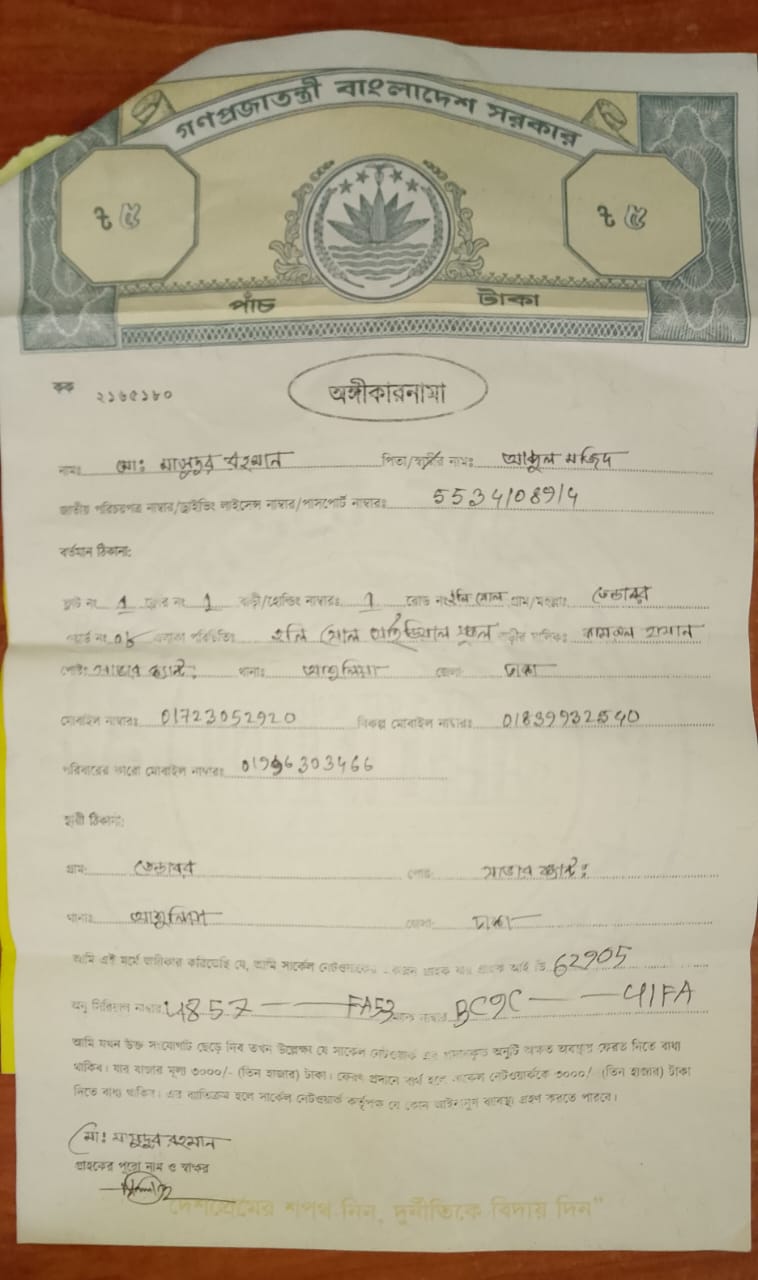 গণপ্রজাতন্ত্রী বাংলাদেশ সরকার
৳ ৫ ৳ ৫
পাঁচ টাকা
কক ২১৬৫১৮০
অঙ্গীকারনামা
নামঃ মোঃ মাসুদুর রহমান পিতা/স্বামীর নামঃ আব্দুল মজিদ
জাতীয় পরিচয়পত্র নাম্বার/ড্রাইভিং লাইসেন্স নাম্বার/পাসপোর্ট নাম্বারঃ 5534108914
বর্তমান ঠিকানা:
ফ্লাট নং 1 ফ্লোর নং 1 বাড়ী/হোল্ডিং নাম্বারঃ 1 রোড নং হলি সোল গ্রাম/মহল্লাঃ ডেন্ডাবর
ওয়ার্ড নং 08 এলাকা পরিচিতিঃ হলি সোল আইডিয়াল স্কুল বাড়ীর মালিকঃ হাসান
পোষ্টঃ সাভার ক্যান্টঃ থানাঃ আশুলিয়া জেলাঃ ঢাকা
মোবাইল নাম্বারঃ 01723052920 বিকল্প মোবাইল নাম্বারঃ
পরিবারের কারো মোবাইল নাম্বারঃ
স্থায়ী ঠিকানা:
গ্রাম: ডেন্ডাবর পোষ্ট: সাভার ক্যান্টঃ
থানাঃ আশুলিয়া জেলাঃ ঢাকা
আমি এই মর্মে অঙ্গীকার করিতেছি যে, আমি সার্কেল নেটওয়ার্কের একজন গ্রাহক যার গ্রাহক আই ডি 62905
অনু সিরিয়াল নাম্বার 4857 — — FA53 ম্যাক নাম্বার BC9C — — 41FA
আমি যখন উক্ত সংযোগটি ছেড়ে দিব তখন উল্লেক্ষ যে সার্কেল নেটওয়ার্ক এর প্রদানকৃত অনুটি অক্ষত অবস্থায় ফেরত দিতে বাধ্য
থাকিব। যার বাজার মূল্য ৩০০০/- (তিন হাজার) টাকা। ফেরৎ প্রদানে ব্যর্থ হলে সার্কেল নেটওয়ার্ককে ৩০০০/- (তিন হাজার) টাকা
দিতে বাধ্য থাকিব। এর ব্যতিক্রম হলে সার্কেল নেটওয়ার্ক কর্তৃপক্ষ যে কোন আইনানুগ ব্যবস্থা গ্রহণ করতে পারবে।
মোঃ মাসুদুর রহমান
গ্রাহকের পুরো নাম ও স্বাক্ষর
"দেশপ্রেমের শপথ নিন, দুর্নীতিকে বিদায় দিন"